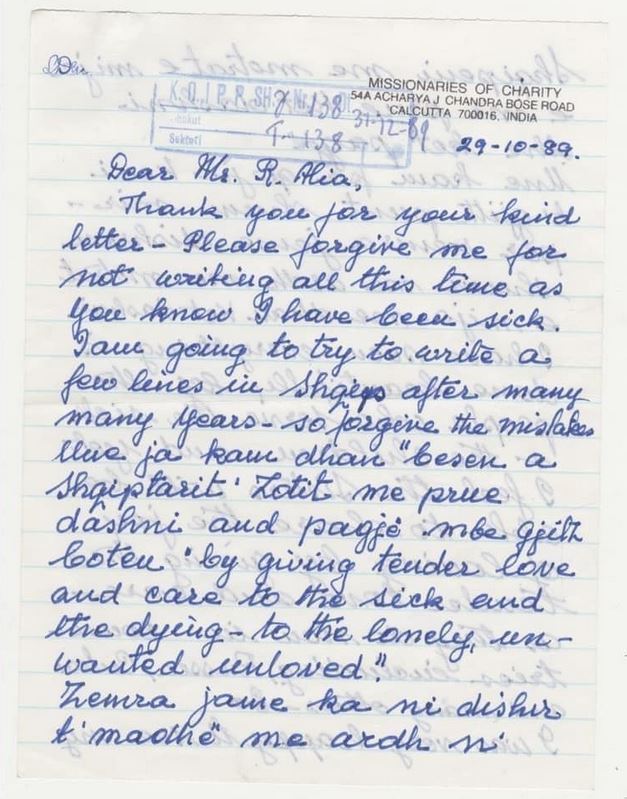 MISSIONARIES OF CHARITY
54A ACHARYA J. CHANDRA BOSE ROAD
CALCUTTA 700016, INDIA
K.Q.I.P.R.SH.
138
31-12-89
Sektori
138
29-10-89.
Dear Mr. R. Alia,
Thank you for your kind
letter - Please forgive me for
not writing all this time as
you know I have been sick.
I am going to try to write a
few lines in Shqip after many
many years - so forgive the mistakes
Une ja kam dhan "besen a
Shqiptarit" Zotit me prue
dâshni and pagjë mbe gjith
boten "by giving tender love
and care to the sick and
the dying - to the lonely, un-
wanted unloved"
Zemra jame ka ni dishir
t'madhë me ardh ni